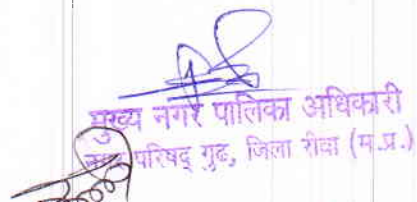 मुख्य नगर पालिका अधिकारी
नगर परिषद् गुढ, जिला रीवा (म.प्र.)